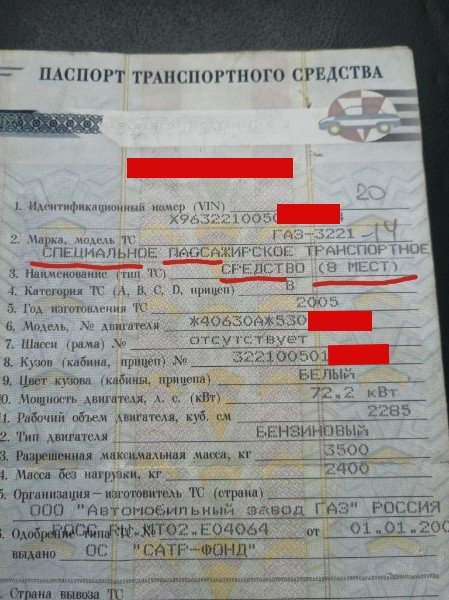 ПАСПОРТ ТРАНСПОРТНОГО СРЕДСТВА
20
1. Идентификационный номер (VIN)
X963221005
2. Марка, модель ТС ГАЗ-3221 14
СПЕЦИАЛЬНОЕ ПАССАЖИРСКОЕ ТРАНСПОРТНОЕ
3. Наименование (тип ТС) СРЕДСТВО (8 МЕСТ)
4. Категория ТС (А, В, С, D, прицеп) В
5. Год изготовления ТС 2005
6. Модель, № двигателя *40630А*530
7. Шасси (рама) № отсутствует
8. Кузов (кабина, прицеп) № 322100501
9. Цвет кузова (кабины, прицепа) БЕЛЫЙ
10. Мощность двигателя, л. с. (кВт) 72.2 кВт
11. Рабочий объем двигателя, куб. см 2285
2. Тип двигателя БЕНЗИНОВЫЙ
3. Разрешенная максимальная масса, кг 3500
4. Масса без нагрузки, кг 2400
5. Организация – изготовитель ТС (страна)
ООО "Автомобильный завод ГАЗ" РОССИЯ
РОСС RU.МТ02.Е04064 от 01.01.200
Одобрение типа ТС №
выдано ОС "САТР-ФОНД"
. Страна вывоза ТС